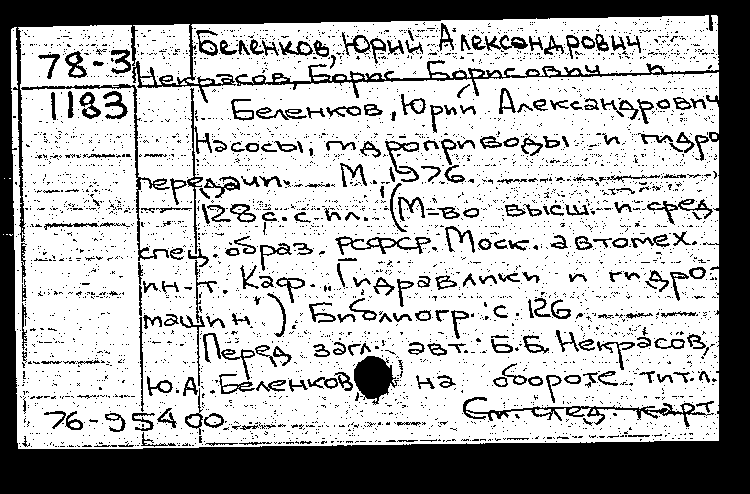 Беленков, Юрий Александрович
78-3 Некрасов, Борис Борисович и
1183 Беленков, Юрий Александрович
Насосы, гидроприводы и гидро
передачи. М., 1976.
128 с. с ил. (М-во высш. и сред.
спец. образ. РСФСР. Моск. автомех.
ин-т. Каф. „Гидравлики и гидро-
машин"). Библиогр.: с. 126.
Перед загл. авт.: Б.Б. Некрасов,
Ю.А. Беленков на обороте тит. л.
76-95400 См. след. карт.